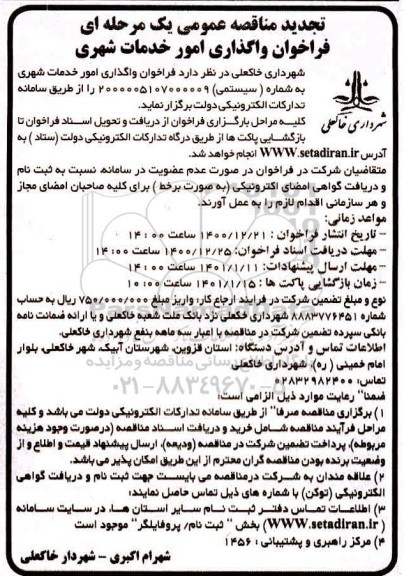 تجدید مناقصه عمومی یک مرحله ای
فراخوان واگذاری امور خدمات شهری
شهرداری خاکعلی
شهرداری خاکعلی در نظر دارد فراخوان واگذاری امور خدمات شهری
به شماره ( سیستمی) ۲۰۰۰۰۰۵۱۰۷۰۰۰۰۰۹ را از طریق سامانه
تدارکات الکترونیکی دولت برگزار نماید.
کلیه مراحل بارگزاری فراخوان از دریافت و تحویل اسناد فراخوان تا
بازگشایی پاکت ها از طریق درگاه تدارکات الکترونیکی دولت (ستاد ) به
آدرس WWW.setadiran.ir انجام خواهد شد.
متقاضیان شرکت در فراخوان در صورت عدم عضویت در سامانه، نسبت به ثبت نام
و دریافت گواهی امضای الکترونیکی (به صورت برخط ) برای کلیه صاحبان امضای مجاز
و هر سازمانی اقدام لازم را به عمل آورند.
مواعد زمانی:
– تاریخ انتشار فراخوان : ۱۴۰۰/۱۲/۲۱ ساعت ۱۴:۰۰
– مهلت دریافت اسناد فراخوان: ۱۴۰۰/۱۲/۲۵ ساعت ۱۴:۰۰
– مهلت ارسال پیشنهادات: ۱۴۰۱/۱/۱۱ ساعت ۱۴:۰۰
– زمان بازگشایی پاکت ها : ۱۴۰۱/۱/۱۵ ساعت ۱۰:۰۰
نوع و مبلغ تضمین شرکت در فرایند ارجاع کار: واریز مبلغ ۷۵۰/۰۰۰/۰۰۰ ریال به حساب
شماره ۸۸۸۳۷۷۶۴۵۱ شهرداری خاکعلی نزد بانک ملت شعبه خاکعلی و یا ارائه ضمانت نامه
بانکی سپرده تضمین شرکت در مناقصه با اعتبار سه ماهه بنفع شهرداری خاکعلی.
اطلاعات تماس و آدرس دستگاه: استان قزوین، شهرستان آبیک، شهر خاکعلی، بلوار
امام خمینی ( ره)، شهرداری خاکعلی
تماس: ۰۲۸۳۲۹۸۲۴۰۰
ضمنا" رعایت موارد ذیل الزامی است:
۱) برگزاری مناقصه صرفا" از طریق سامانه تدارکات الکترونیکی دولت می باشد و کلیه
مراحل فرآیند مناقصه شامل خرید و دریافت اسناد مناقصه (درصورت وجود هزینه
مربوطه)، پرداخت تضمین شرکت در مناقصه (ودیعه)، ارسال پیشنهاد قیمت و اطلاع و از
وضعیت برنده بودن مناقصه گران محترم از این طریق امکان پذیر می باشد.
۲) علاقه مندان به شرکت درمناقصه می بایست جهت ثبت نام و دریافت گواهی
الکترونیکی (توکن) با شماره های ذیل تماس حاصل نمایند:
۳) اطلاعات تماس دفتر ثبت نام سایر استان ها، در سایت سامانه
( WWW.setadiran.ir) بخش " ثبت نام/ پروفایلگر" موجود است
۴) مرکز راهبری و پشتیبانی : ۱۴۵۶
شهرام اکبری - شهردار خاکعلی
۰۲۱-۸۸۳۴۹۶۷۰